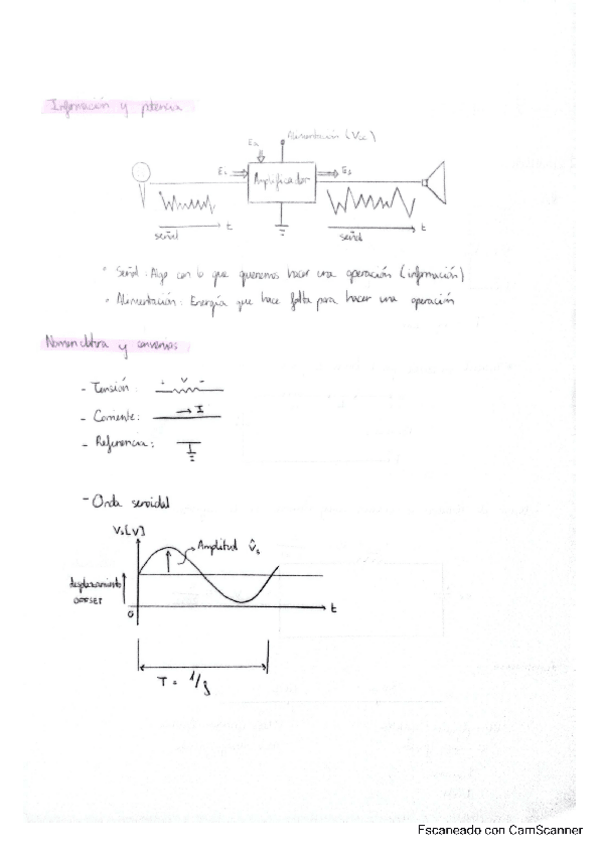 Información y potencia
Alimentación (Vcc)
E2
E1
Amplificador
E3
t
señal
t
señal
Señal: Algo con lo que queremos hacer una operación (información)
Alimentación: Energía que hace falta para hacer una operación
Nomenclatura y convenios
- Tensión: + V -
- Corriente: → I
- Referencia:
- Onda senoidal
[V]
Amplitud
desplazamiento
OFFSET
0
t
T = 1/f
Escaneado con CamScanner